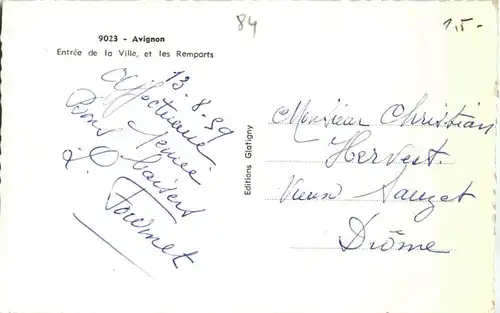 84
1,5-
9023 - Avignon
Entrée de la Ville, et les Remparts
13-8-59
Affectueuse
pensée
Bons baisers
Fournet
Editions Glatigny
Monsieur Christian
Hervest
Vieux Sauzet
Drôme